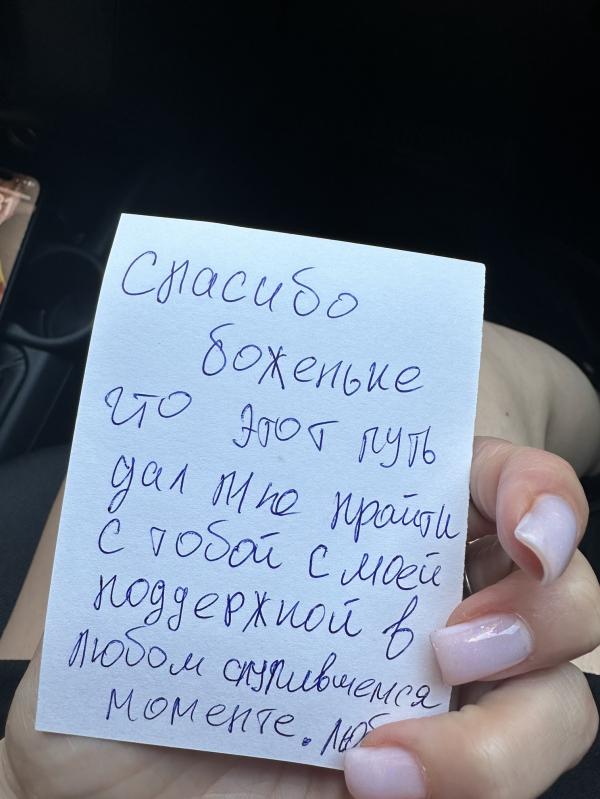 Спасибо
боженьке
что этот путь
дал мне пройти
с тобой с моей
поддержкой в
любом случившемся
моменте. Люб